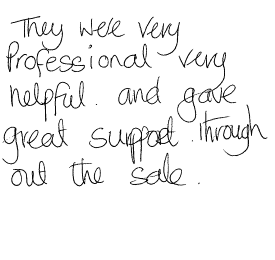 They were very
Professional very
helpful. and gave
great support. through
out the sale.